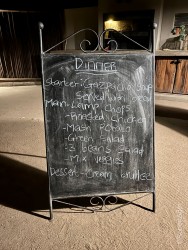 DINNER
Starter: Gazpacho Soup
Served with
Main: Lamb chops
- Roasted Chicken
- Mash Potato
- Green Salad
- 3 beans Salad
- Mix veggies
Dessert: Cream